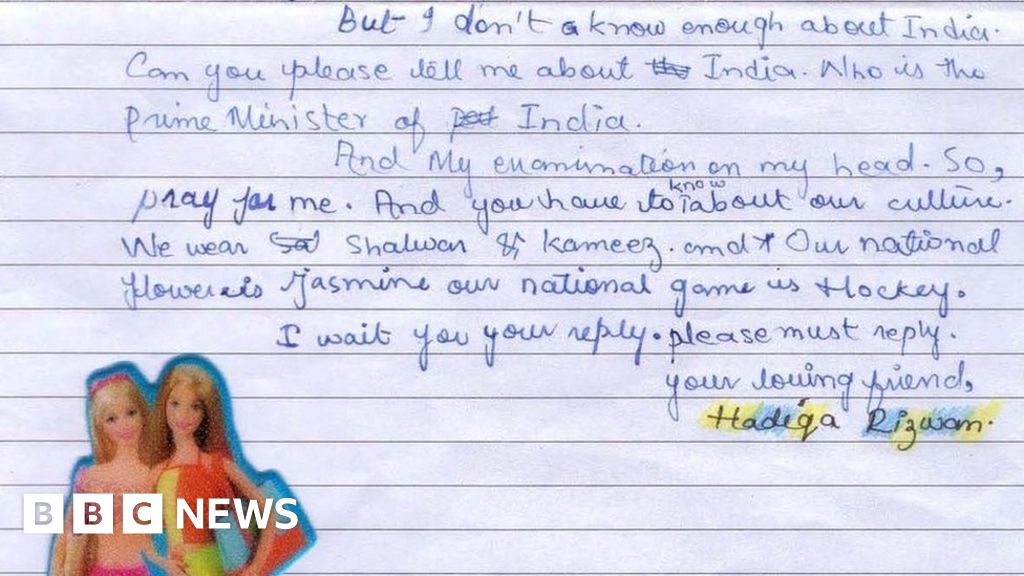 But I don't know enough about India.
Can you please tell me about the India. Who is the
Prime Minister of India.
And My enamination on my head. So,
pray for me. And you have to know about our culture.
We wear Shalwar & Kameez. and Our national
flower is Jasmine our national game is Hockey.
I wait you your reply. please must reply.
your loving friend,
Hadiqa Rizwan.
BBC NEWS